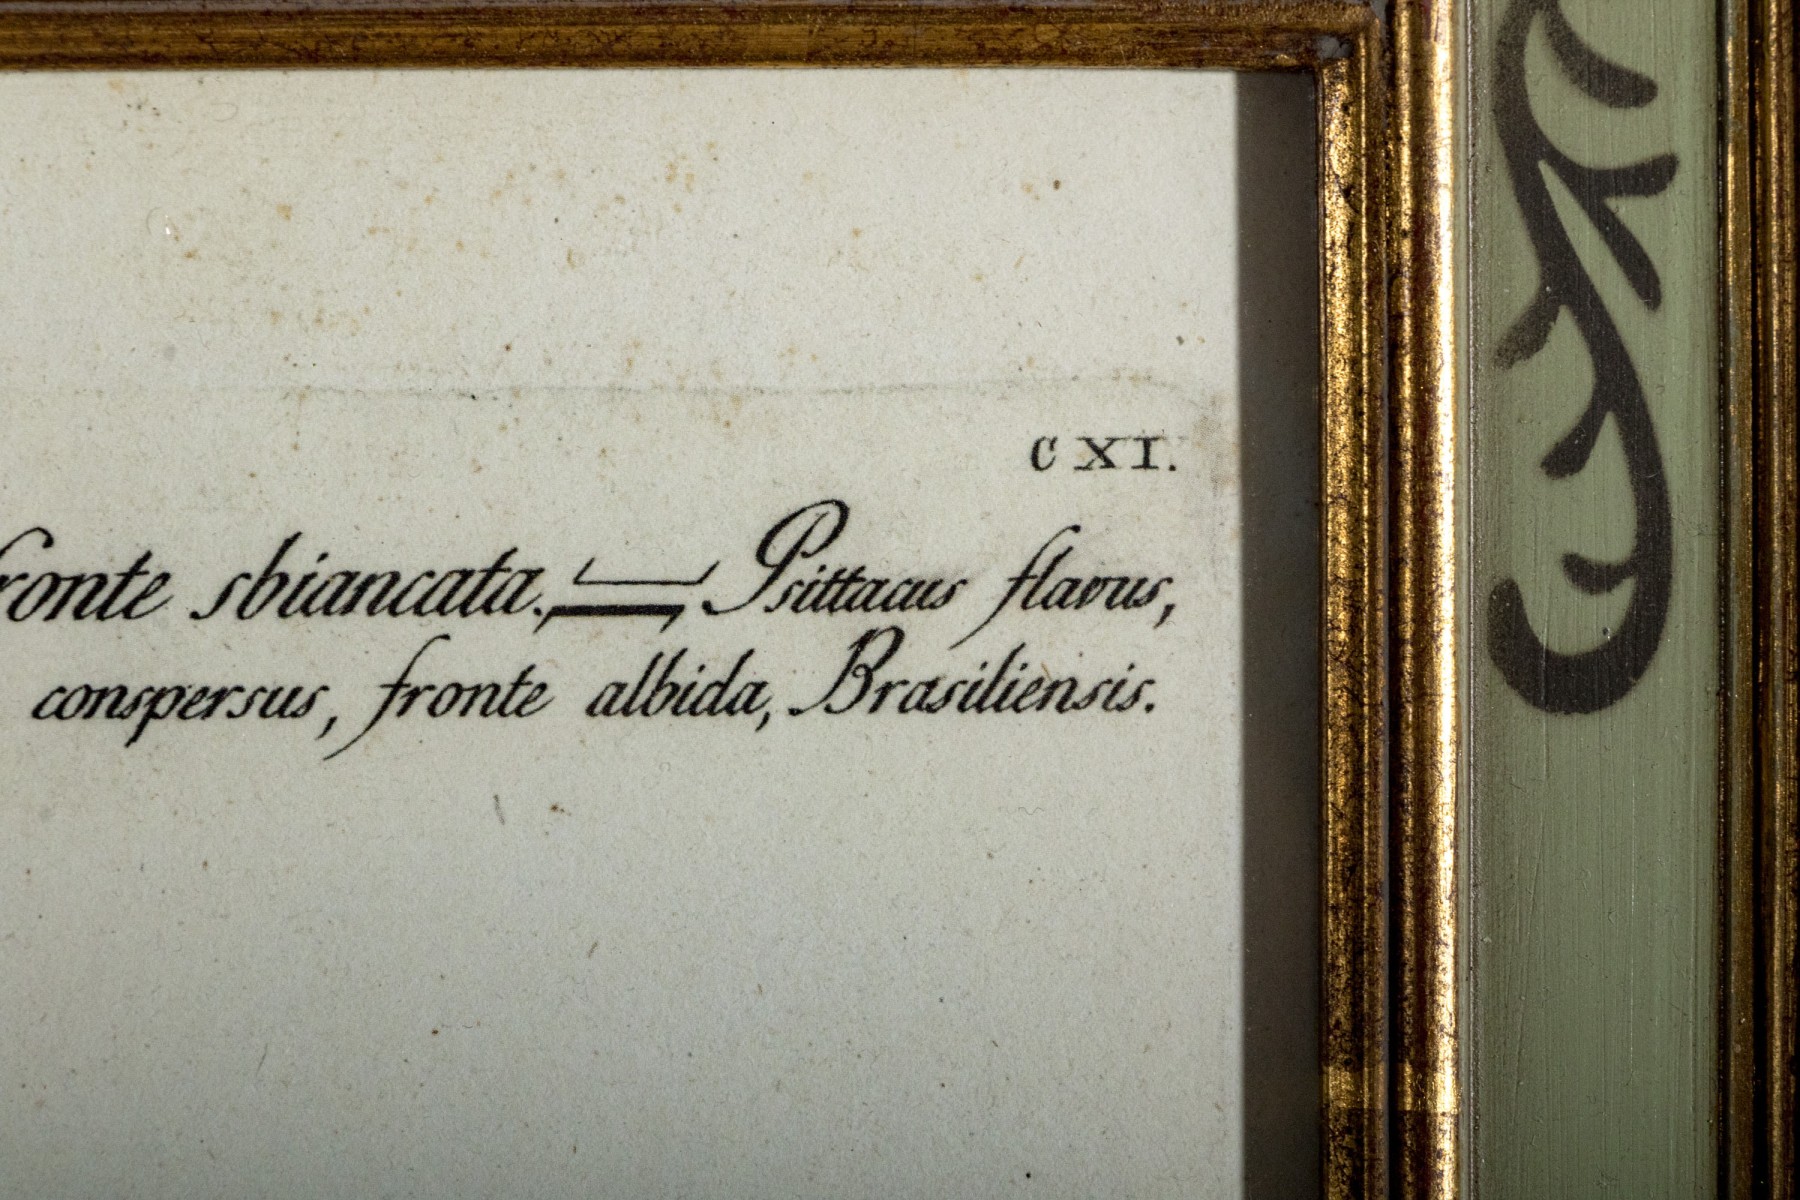 CXI.
fronte sbiancata. Psittacus flavus,
conspersus, fronte albida, Brasiliensis.